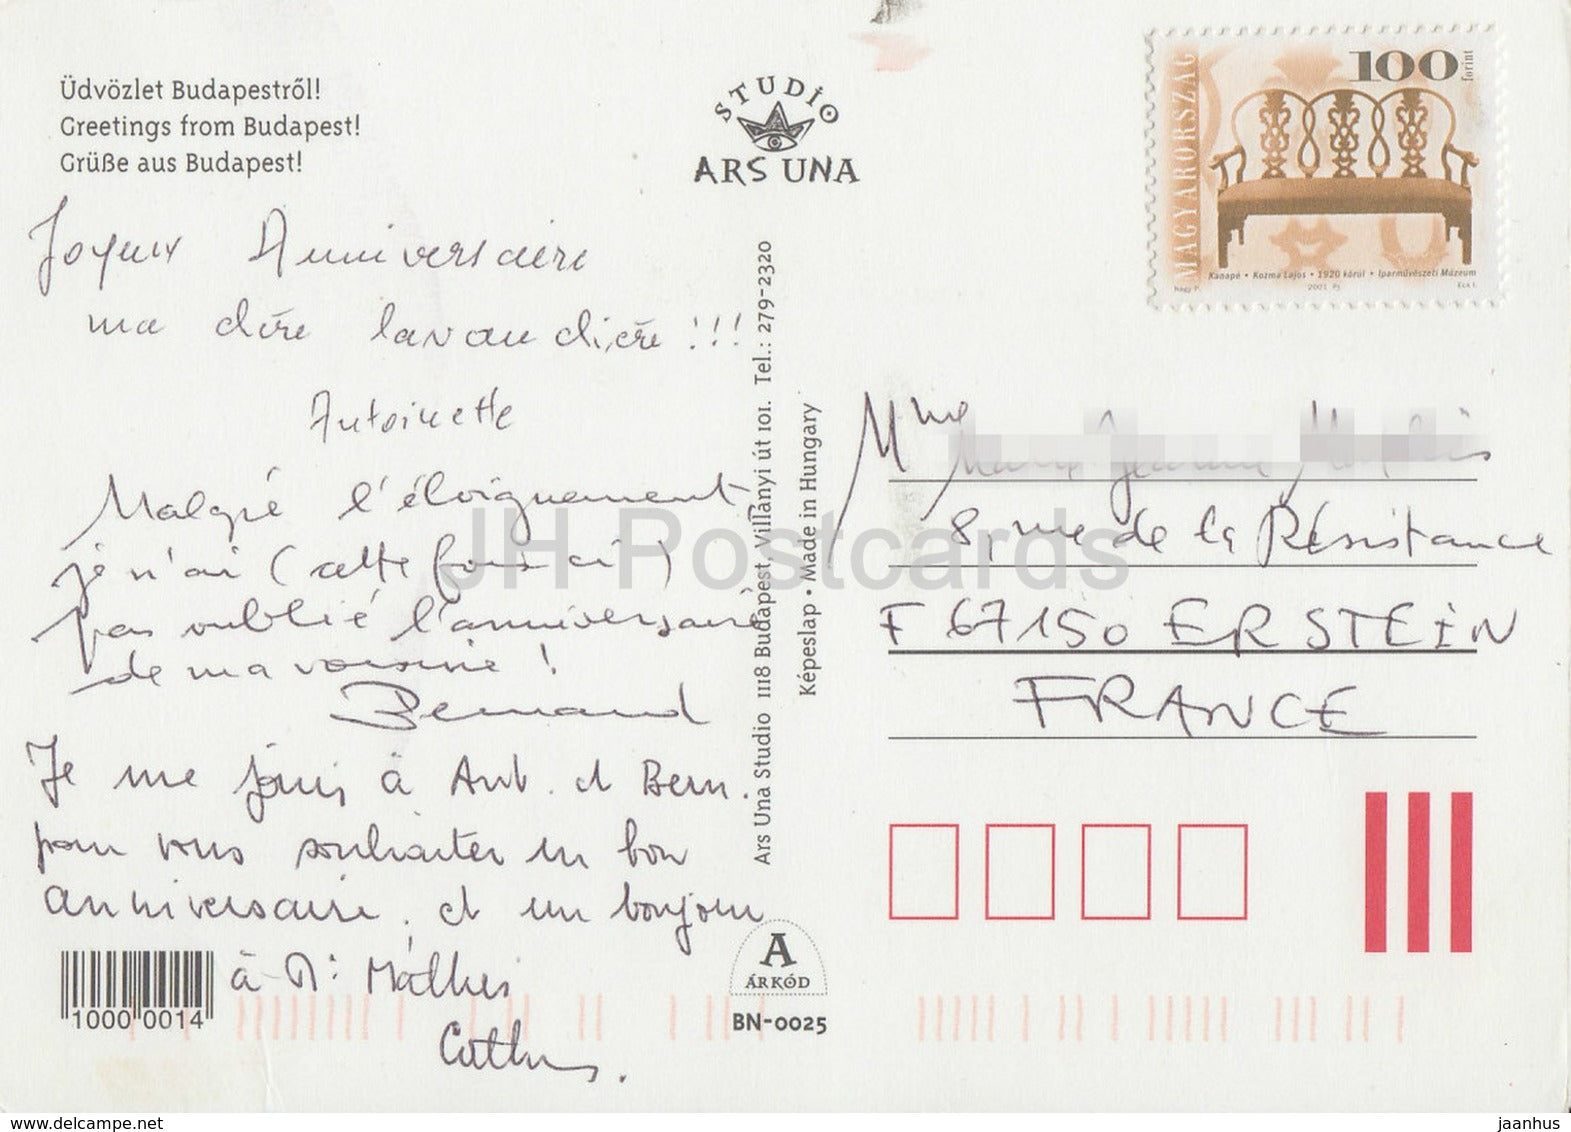 Üdvözlet Budapestről!
Greetings from Budapest!
Grüße aus Budapest!
Joyeux Anniversaire
ma chère lavandière !!!
Antoinette
Malgré l'éloignement
je n'ai (cette fois ci)
pas oublié l'anniversaire
de ma voisine !
Bernard
Je me joins à Ant. et Bern.
pour vous souhaiter un bon
anniversaire. et un bonjour
à Mr Mathis
1000 0014
STUDIO
ARS UNA
Ars Una Studio 1118 Budapest, Villányi út 101. Tel.: 279-2320
Képeslap • Made in Hungary
A
ÁRKÓD
BN-0025
MAGYARORSZÁG
100 forint
Kanapé • Kozma Lajos • 1920 körül • Iparművészeti Múzeum
2001
Mme
8, rue de la Résistance
F 67150 ERSTEIN
FRANCE
JH Postcards
www.delcampe.net
jaanhus